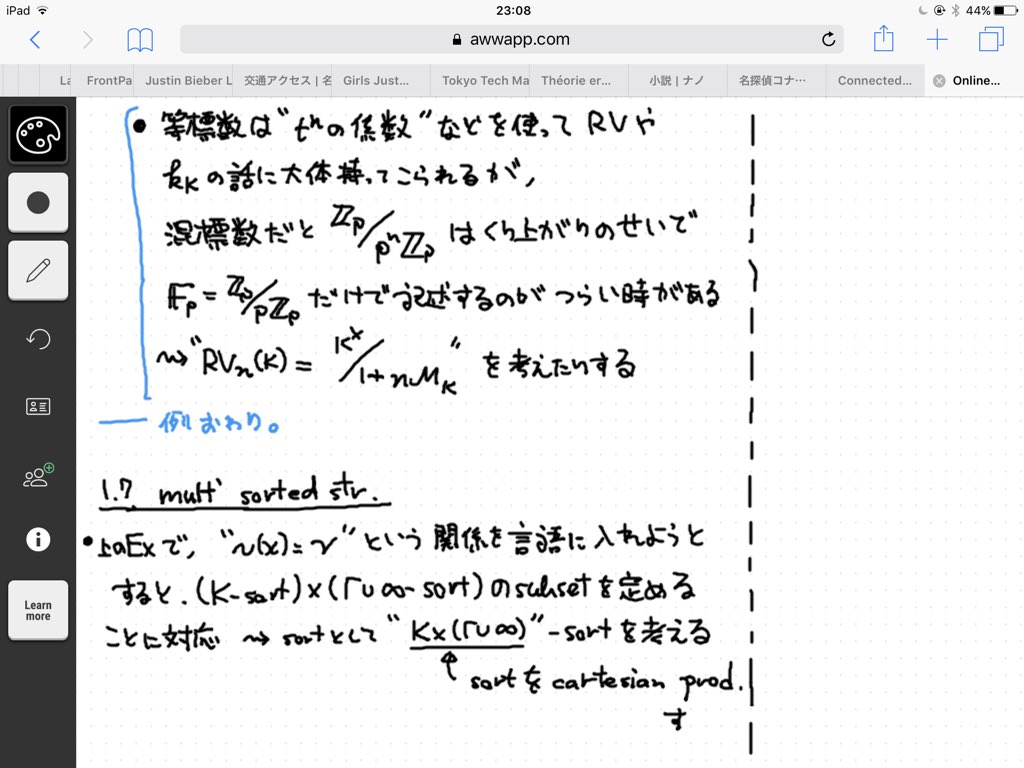 iPad 23:08 44%
awwapp.com
La FrontPa Justin Bieber L 交通アクセス | 名 Girls Just... Tokyo Tech Ma Théorie er... 小説 | ナノ 名探偵コナ… Connected... Online...
• 等標数は"tⁿの係数"などを使って RVや
k_K の話に大体持ってこられるが,
混標数だと ℤp/pⁿℤp はくり上がりのせいで
𝔽p = ℤp/pℤp だけで記述するのがつらい時がある
⇝ "RVn(K) = K^×/1+nM_K" を考えたりする
— 例おわり。
1.7 multi sorted str.
• 上のExで, "v(x)=γ" という関係を言語に入れようと
すると. (K-sort)×(Γ∪∞-sort) のsubsetを定める
ことに対応 ⇝ sortとして "K×(Γ∪∞)"-sortを考える
↑ sortをcartesian prod.
す
Learn
more